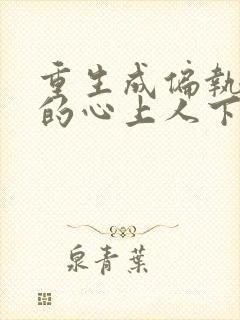 重生成偏執
的心上人下
泉青葉